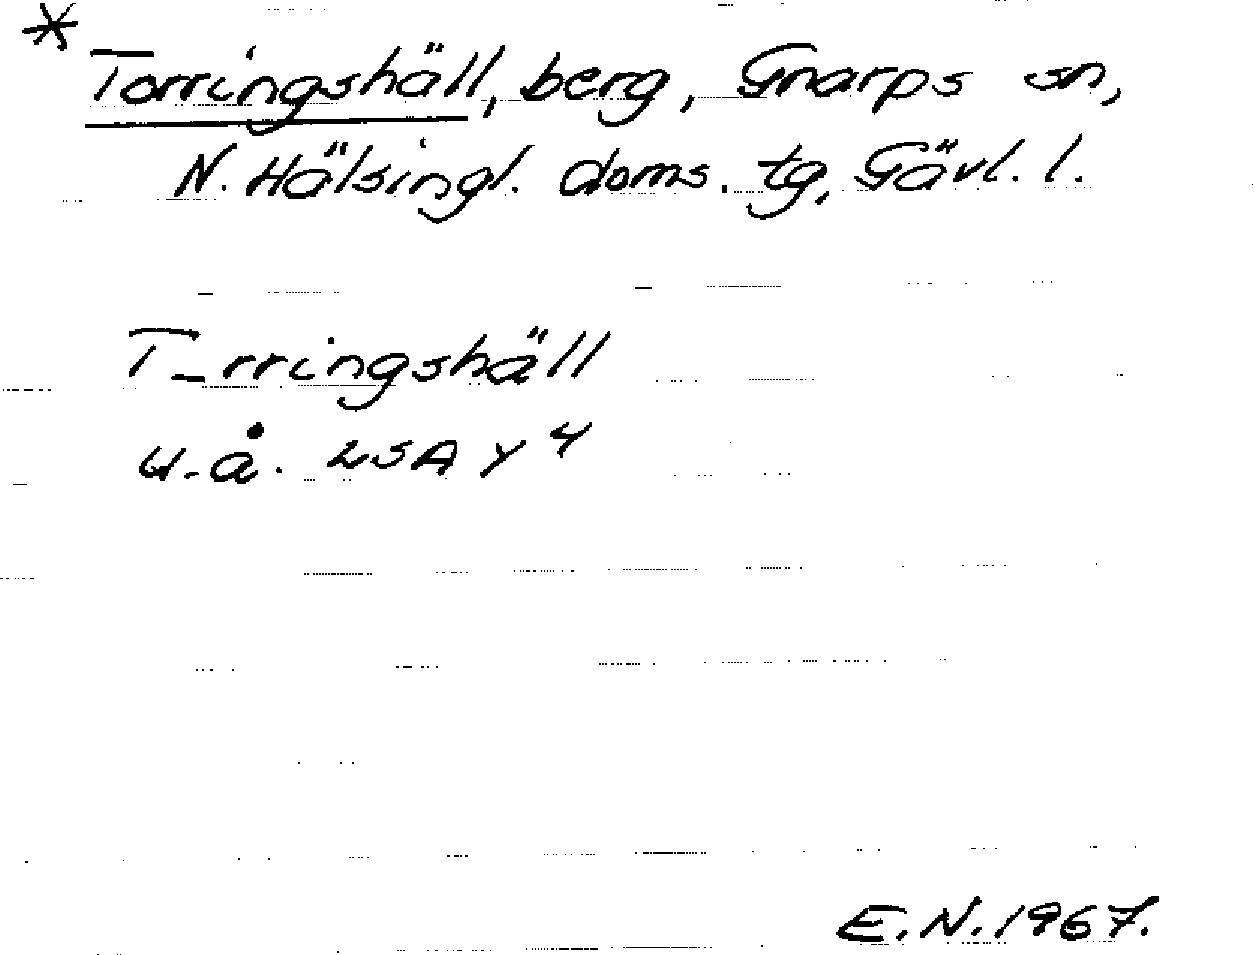 * Torringshäll, berg, Gnarps sn,
N. Hälsingl. doms. tg, Gävl. l.
T_rringshäll
u.å. LSA Y 4
E.N. 1967.